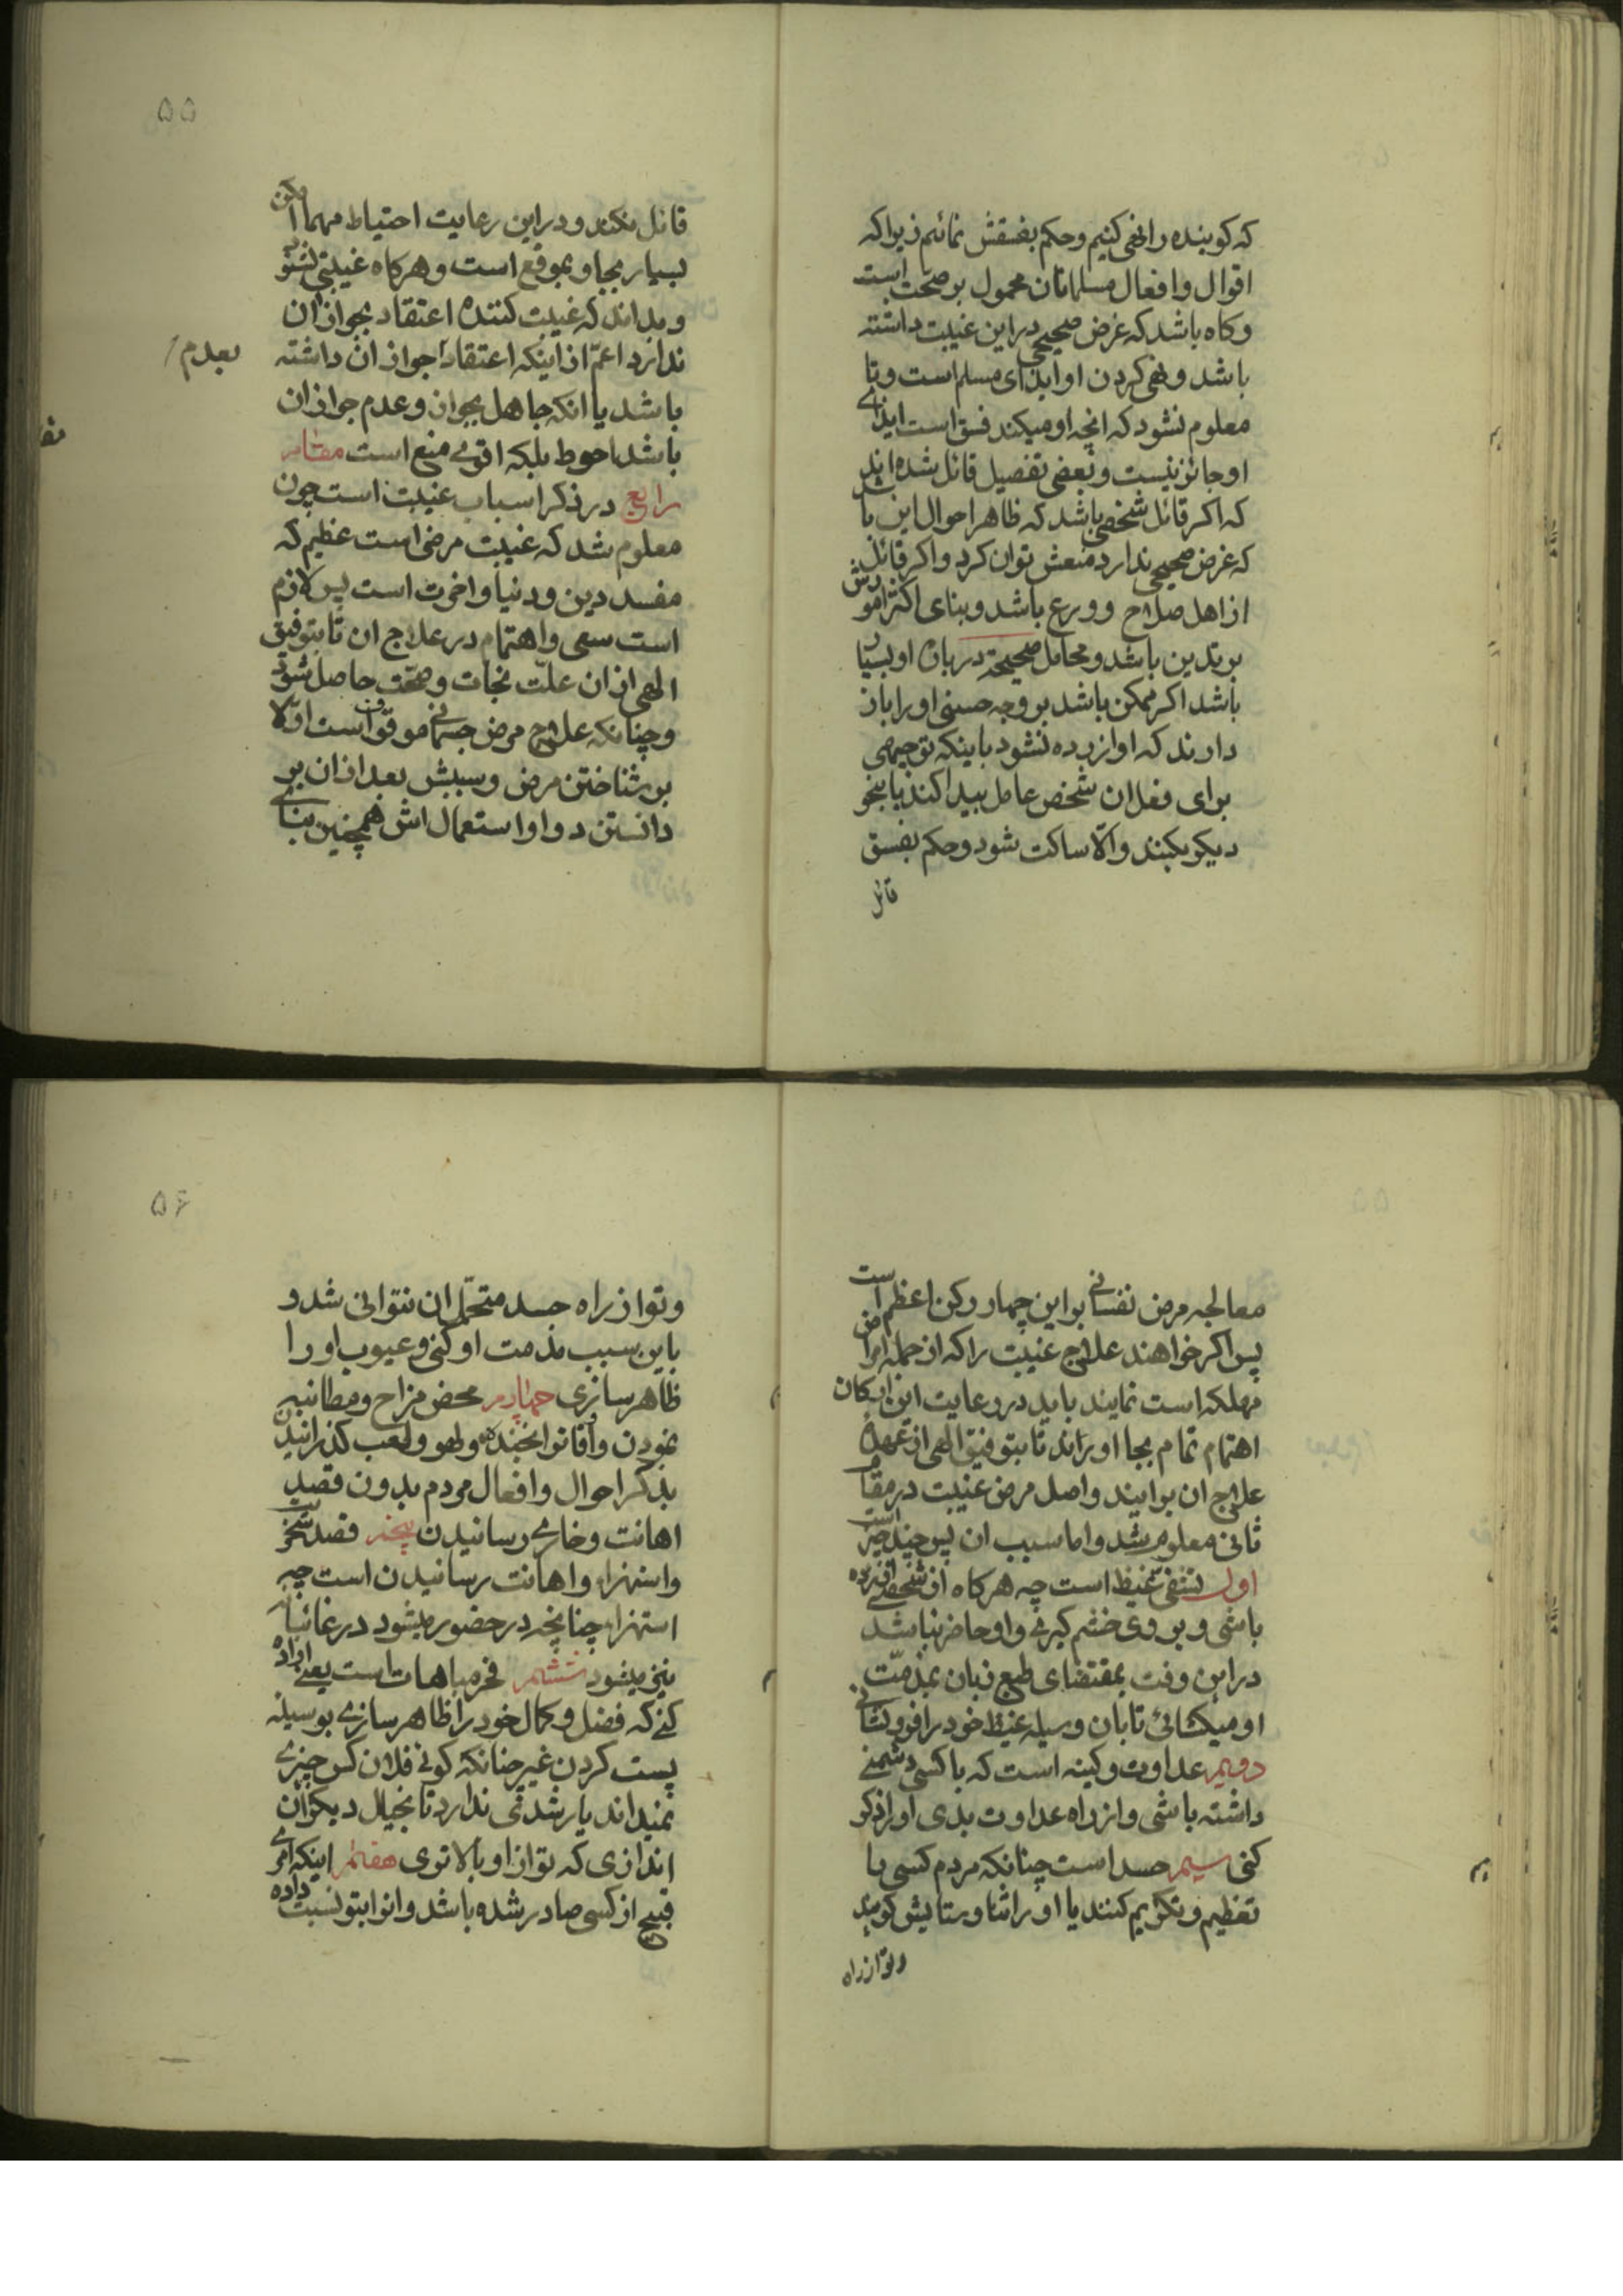 که کوینده را نهی کنیم و حکم بفسقش نمائیم زیرا که
اقوال و افعال مسلمانان محمول بر صحّت است
و کاه باشد که غرض صحیحی در این غیبت داشته
باشد و نهی کردن او ایذای مسلم است و تا
معلوم نشود که انچه او میکند فسق است ایذای
او جائز نیست و بعضی تفصیل قائل شده اند
که اکر قائل شخصی باشد که ظاهر احوال این باشد
که غرض صحیحی ندارد منعش توان کرد و اکر قائل
از اهل صلاح و ورع باشد و بنای اکثر امورش
بر تدین باشد و محامل صحیحة در باره او بسیار
باشد اکر ممکن باشد بر وجه حسنی او را باز
دارند که او ازرده نشود باینکه توجیهی
برای فعل ان شخص عامل پیدا کند یا بنحو
دیکر بکند و الّا ساکت شود و حکم بفسق
قائل
۵۵
قائل نکند و در این رعایت احتیاط مهما امکن
بسیار بجا و بموقع است و هرکاه غیبتی بشنود
و بداند که غیبت کننده اعتقاد بجواز ان
ندارد اعمّ از اینکه اعتقاد جواز ان داشته
بعدم
باشد یا انکه جاهل بجواز و عدم جواز ان
باشد احوط بلکه اقوی منع است مقام
رابع در ذکر اسباب غیبت است چون
معلوم شد که غیبت مرضی است عظیم که
مفسد دین و دنیا و اخرت است پس لازم
است سعی و اهتمام در علاج ان تا بتوفیق
الهی از ان علّت نجات و صحّت حاصل شود
و چنانکه علاج مرض جسمانی موقوف است اوّلا
بر شناختن مرض و سببش بعد از ان بر
دانستن دوا و استعمال اش همچنین بنای
معالجه مرض نفسانی بر این چهار رکن اعظم است
پس اکر خواهند علاج غیبت را که از جمله امراض
مهلکه است نمایند باید در رعایت این ارکان
اهتمام تمام بجا اورند تا بتوفیق الهی از عهدهٔ
علاج ان برایند و اصل مرض غیبت در مقام
ثانی معلوم شد و اما سبب ان پس چند چیز است
اول تشفّی غیظ است چه هرکاه از شخصی ازرده
باشی و بر وی خشم کیری و او حاضر نباشد
در این وقت بمقتضای طبع زبان بمذمّت
او میکشائی تا بان وسیله غیظ خود را فرو نشانی
دویم عداوت و کینه است که با کسی دشمنی
داشته باشی و از راه عداوت بدی او را ذکر
کنی سیم حسد است چنانکه مردم کسی را
تعظیم و تکریم کنند یا او را ثنا و ستایش کویند
و تو از راه
۵۶
و تو از راه حسد متحمّل ان نتوانی شد و
باین سبب مذمت او کنی و عیوب او را
ظاهر سازی چهارم محض مزاح و مطائبه
نمودن و اوقات را بخنده و لهو و لعب کذرانیدن
بذکر احوال و افعال مردم بدون قصد
اهانت و خاری رسانیدن پنجم قصد سخریت
و استهزاء و اهانت رسانیدن است چه
استهزاء چنانچه در حضور میشود در غائبانه
نیز میشود ششم فخر و مباهات است یعنی اراده
کنی که فضل و کمال خود را ظاهر سازی بوسیله
پست کردن غیر چنانکه کوئی فلان کس چیزی
نمیداند یا رشدی ندارد تا بخیال دیکران
اندازی که تو از او بالاتری هفتم اینکه امری
قبیح از کسی صادر شده باشد و انرا بتو نسبت داده